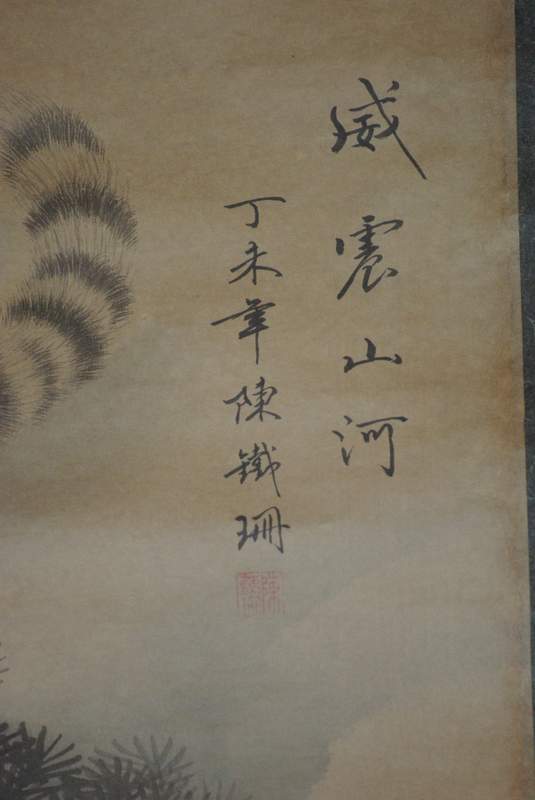 威震山河
丁未年陳鐵珊